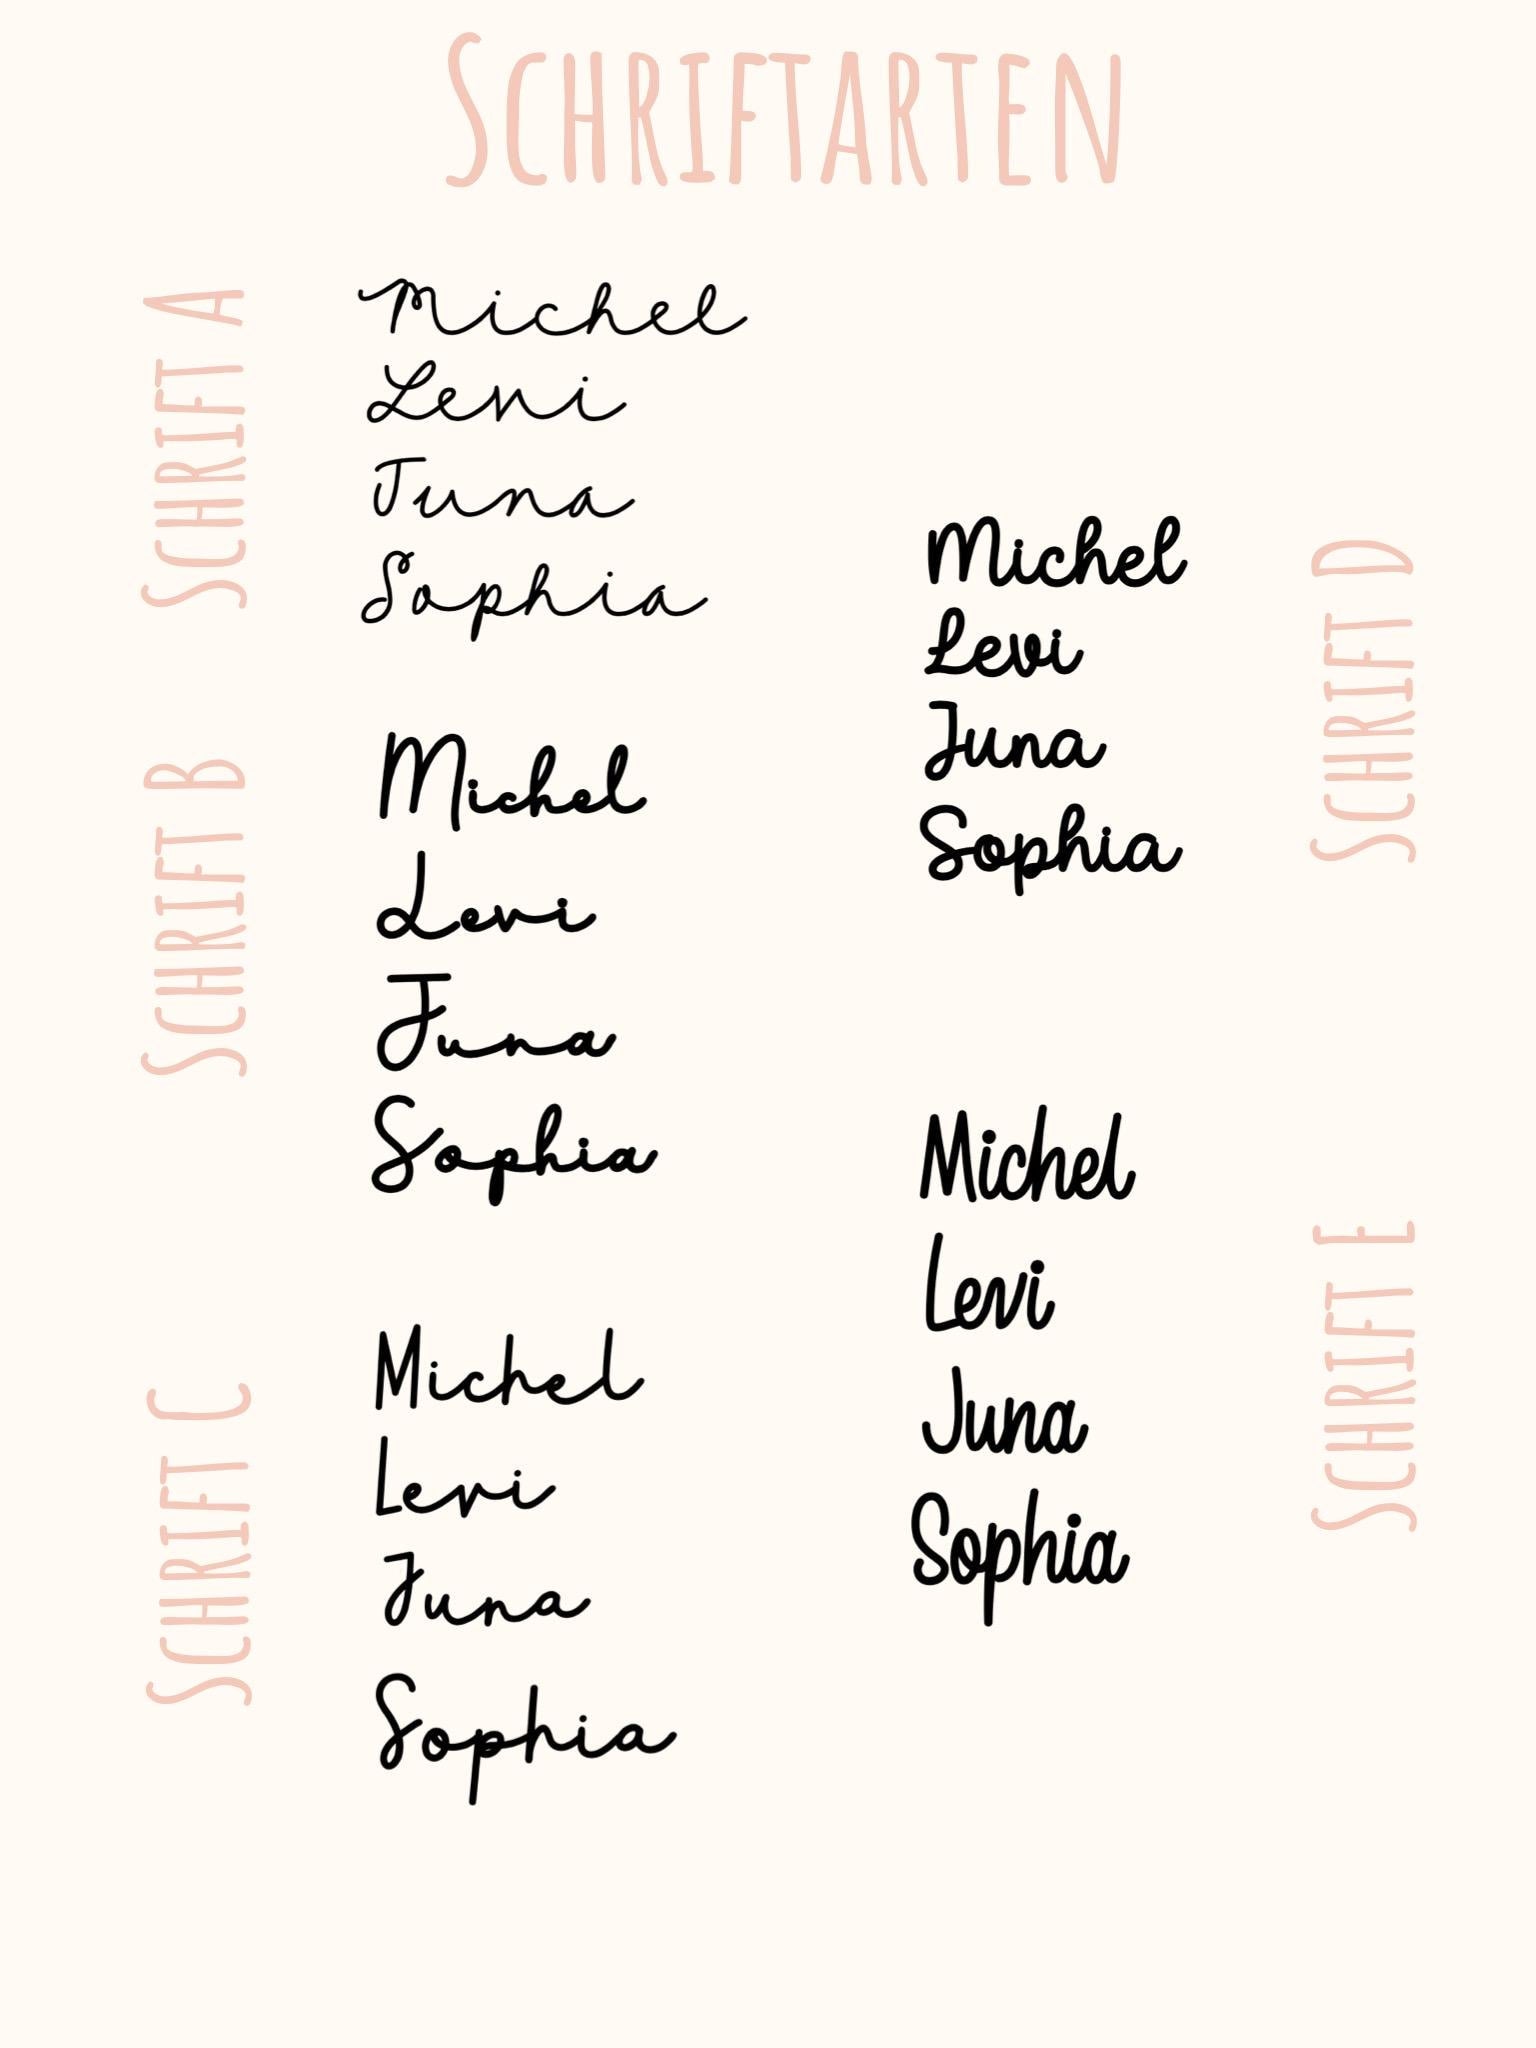 SCHRIFTARTEN
SCHRIFT A
Michel
Levi
Juna
Sophia
SCHRIFT B
Michel
Levi
Juna
Sophia
SCHRIFT C
Michel
Levi
Juna
Sophia
SCHRIFT D
Michel
Levi
Juna
Sophia
SCHRIFT E
Michel
Levi
Juna
Sophia